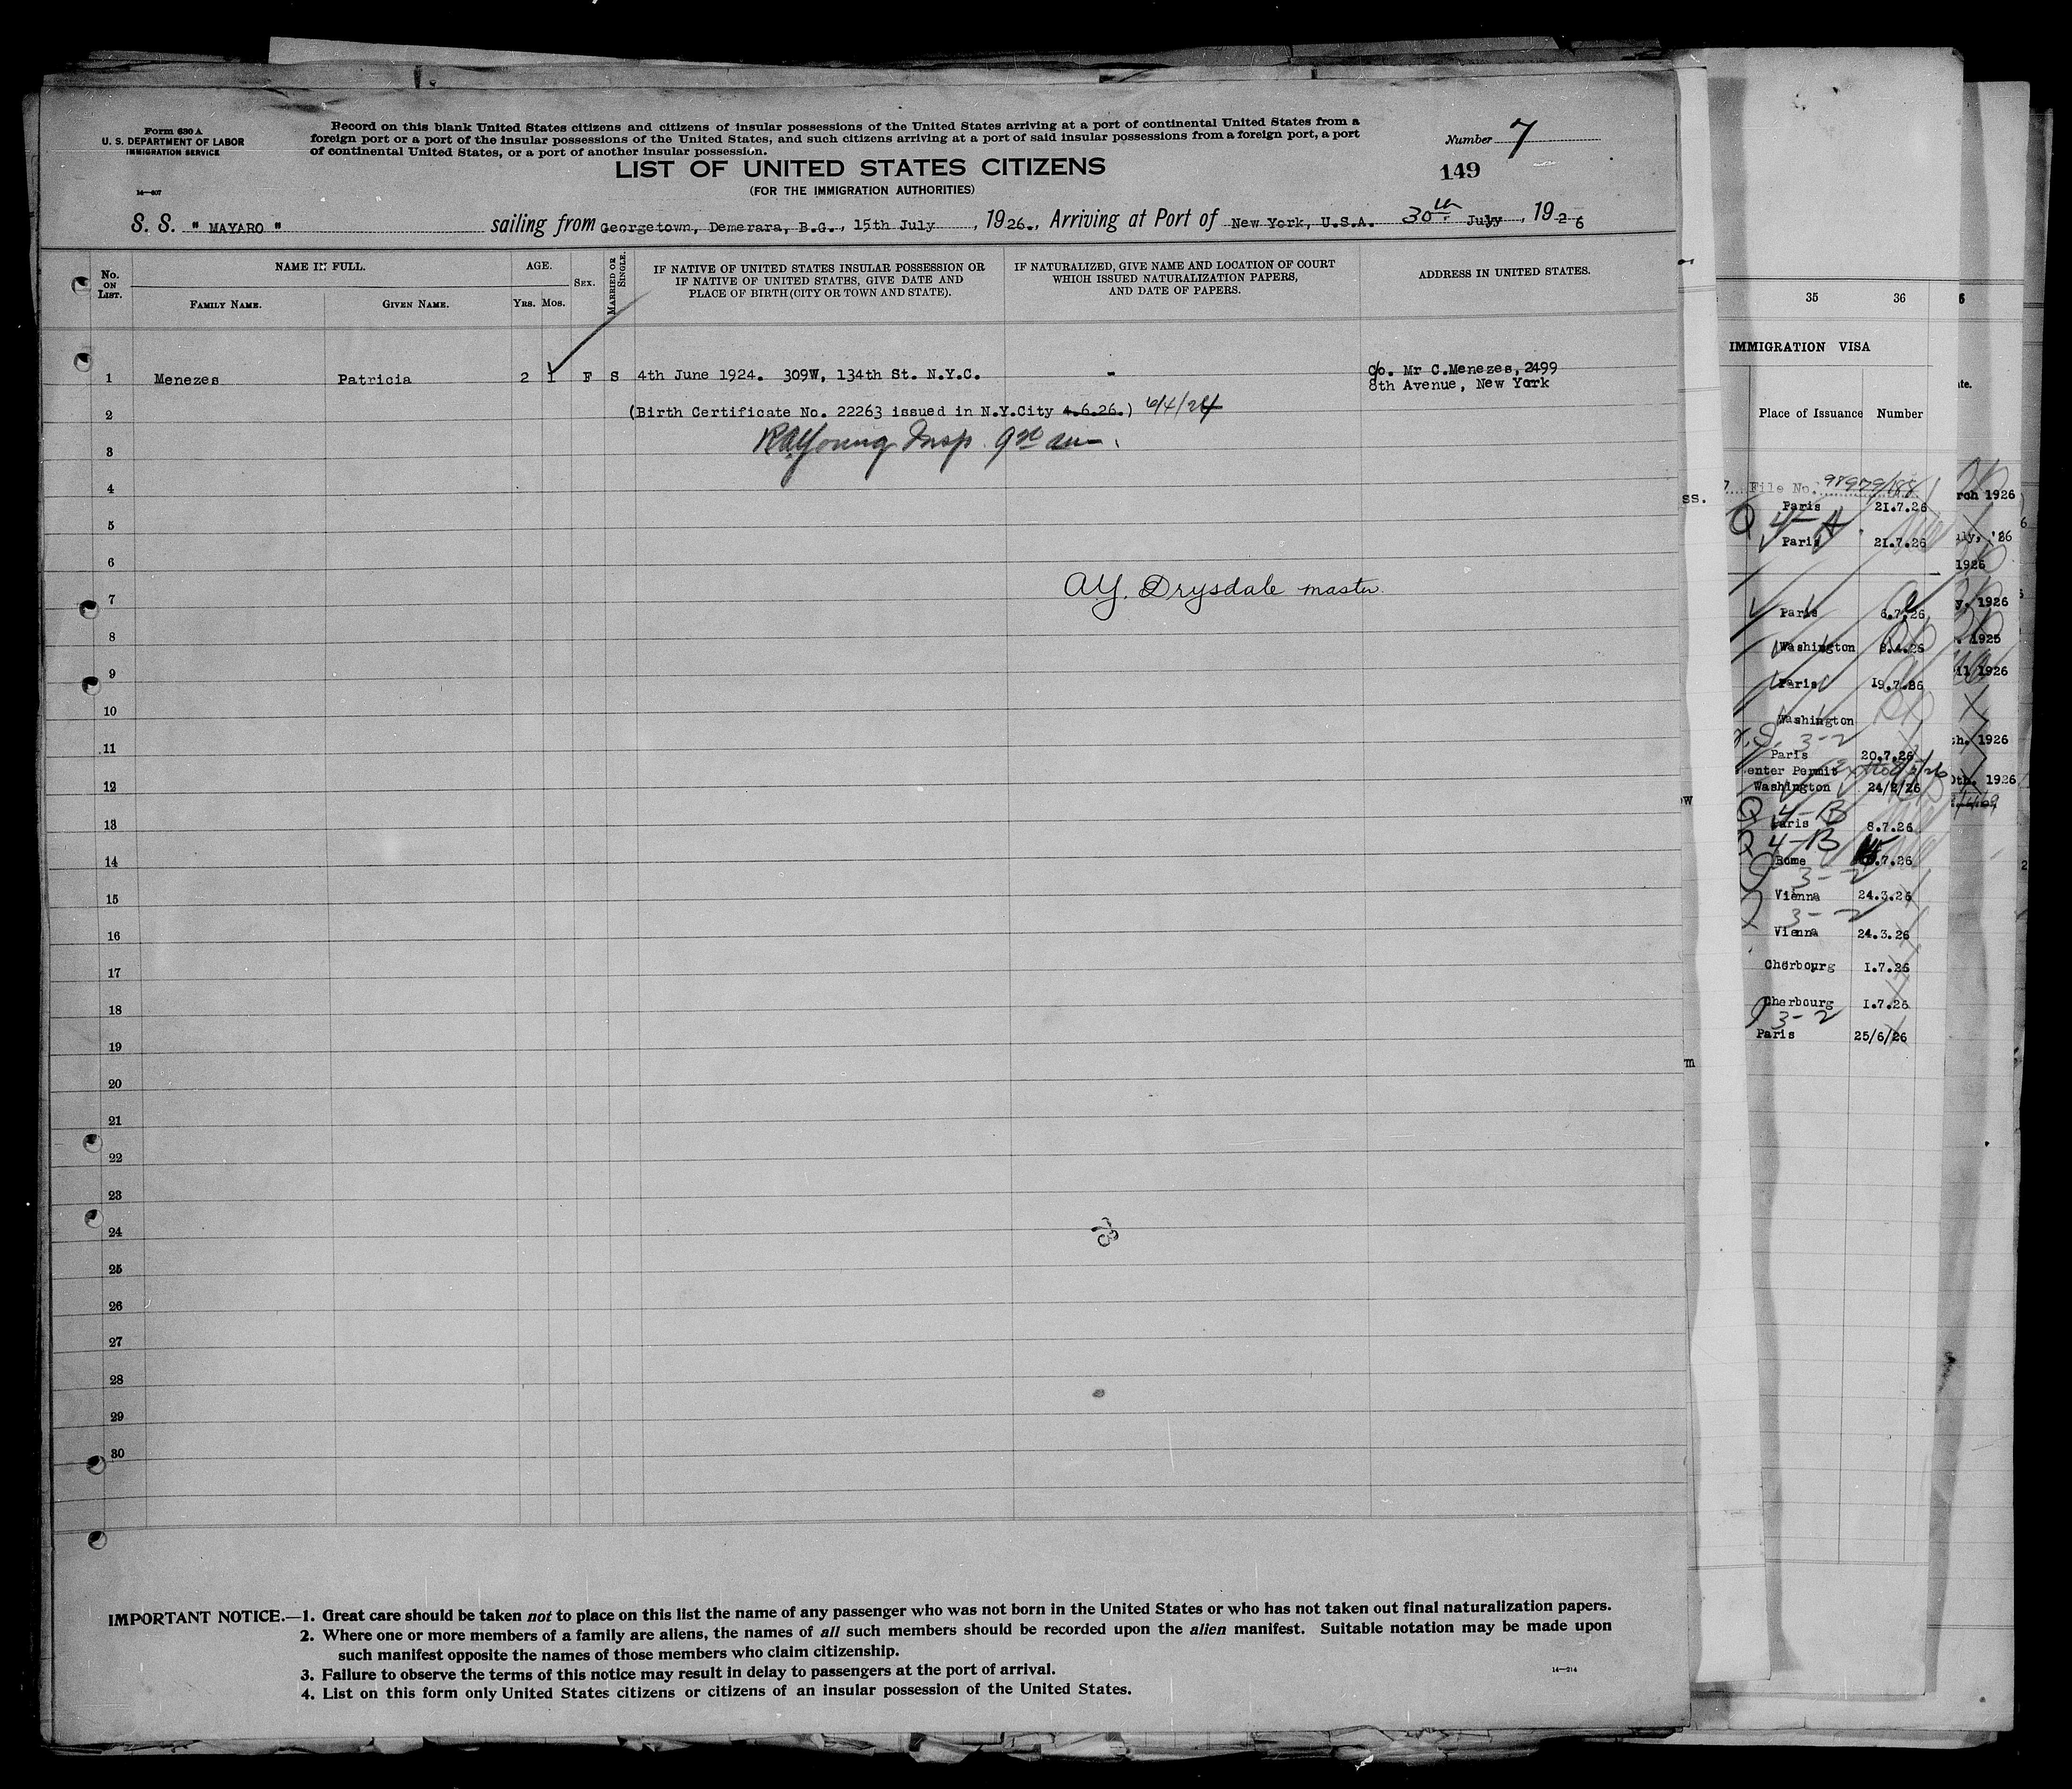 Form 630 A
U. S. DEPARTMENT OF LABOR
IMMIGRATION SERVICE
14—407
Record on this blank United States citizens and citizens of insular possessions of the United States arriving at a port of continental United States from a
foreign port or a port of the insular possessions of the United States, and such citizens arriving at a port of said insular possessions from a foreign port, a port
of continental United States, or a port of another insular possession.
Number 7
LIST OF UNITED STATES CITIZENS
149
(FOR THE IMMIGRATION AUTHORITIES)
S. S. " MAYARO " sailing from Georgetown, Demerara, B.G., 15th July , 1926., Arriving at Port of New York, U.S.A. 30th July , 1926
No. ON LIST.
NAME IN FULL.
FAMILY NAME.
GIVEN NAME.
AGE.
YRS. MOS.
SEX.
MARRIED OR SINGLE.
IF NATIVE OF UNITED STATES INSULAR POSSESSION OR
IF NATIVE OF UNITED STATES, GIVE DATE AND
PLACE OF BIRTH (CITY OR TOWN AND STATE).
IF NATURALIZED, GIVE NAME AND LOCATION OF COURT
WHICH ISSUED NATURALIZATION PAPERS,
AND DATE OF PAPERS.
ADDRESS IN UNITED STATES.
1 Menezes Patricia 2 1 F S 4th June 1924. 309W, 134th St. N.Y.C. - c/o. Mr C.Menezes, 2499
8th Avenue, New York
2 (Birth Certificate No. 22263 issued in N.Y.City 4.6.26.) 6/4/24
3 RAYoung Insp. 9 30 am.
4
5
6
7 A.Y. Drysdale master
8
9
10
11
12
13
14
15
16
17
18
19
20
21
22
23
24
25
26
27
28
29
30
IMPORTANT NOTICE.—1. Great care should be taken not to place on this list the name of any passenger who was not born in the United States or who has not taken out final naturalization papers.
2. Where one or more members of a family are aliens, the names of all such members should be recorded upon the alien manifest. Suitable notation may be made upon
such manifest opposite the names of those members who claim citizenship.
3. Failure to observe the terms of this notice may result in delay to passengers at the port of arrival.
14—214
4. List on this form only United States citizens or citizens of an insular possession of the United States.
35 36
IMMIGRATION VISA
Place of Issuance Number
File No. 97979/188
Paris 21.7.26
Q 4-A
Paris 21.7.26
Paris 6.7.26
Washington 8.4.26
Paris 19.7.26
Washington
3-2
Paris 20.7.26
enter Permit
Washington 24/2/26
Q 4-B
Paris 8.7.26
Q 4-B
Rome .7.26
3-2
Vienna 24.3.26
3-2
Vienna 24.3.26
Cherbourg 1.7.26
Cherbourg 1.7.26
3-2
Paris 25/6/26
1926
'26
1926
1926
1925
1926
1926
1926